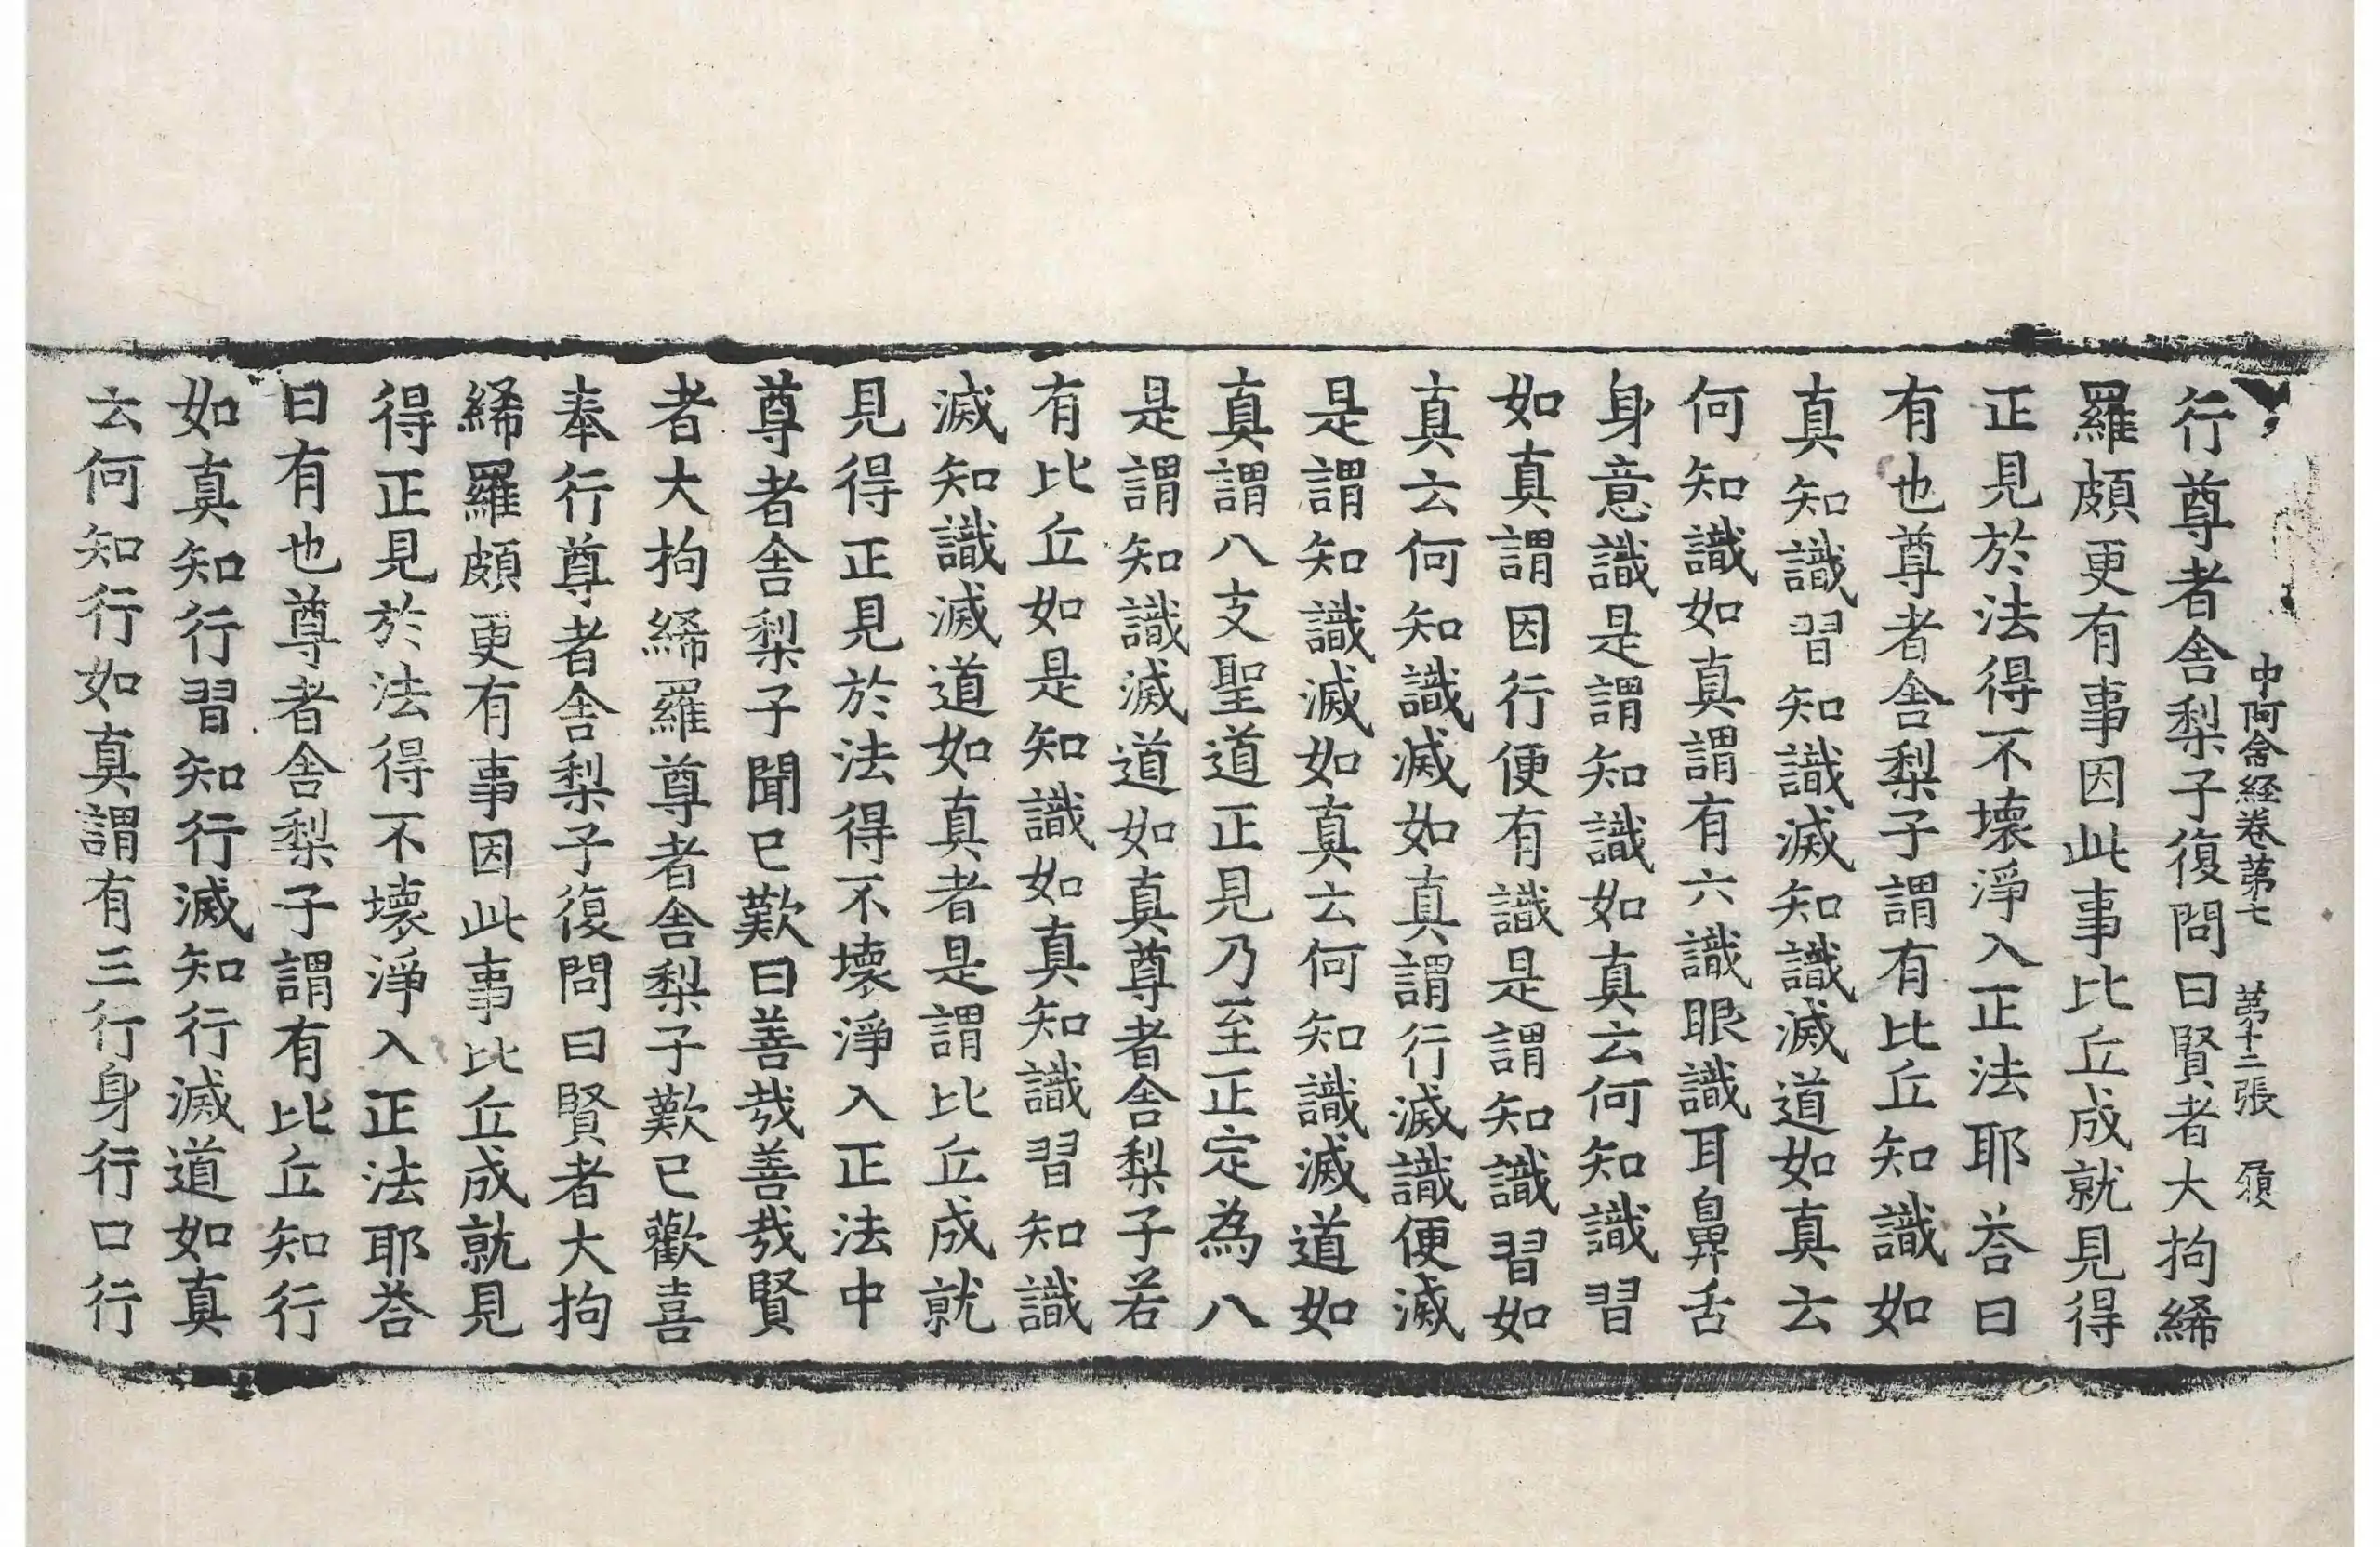 中阿含経卷第七 第十二張 履
行尊者舎梨子復問曰賢者大拘絺
羅頗更有事因此事比丘成就見得
正見於法得不壊淨入正法耶荅曰
有也尊者舎梨子謂有比丘知識如
真知識習知識滅知識滅道如真云
何知識如真謂有六識眼識耳鼻舌
身意識是謂知識如真云何知識習
如真謂因行便有識是謂知識習如
真云何知識滅如真謂行滅識便滅
是謂知識滅如真云何知識滅道如
真謂八支聖道正見乃至正定為八
是謂知識滅道如真尊者舎梨子若
有比丘如是知識如真知識習知識
滅知識滅道如真者是謂比丘成就
見得正見於法得不壊淨入正法中
尊者舎梨子聞已歎曰善哉善哉賢
者大拘絺羅尊者舎梨子歎已歡喜
奉行尊者舎梨子復問曰賢者大拘
絺羅頗更有事因此事比丘成就見
得正見於法得不壊淨入正法耶荅
曰有也尊者舎梨子謂有比丘知行
如真知行習知行滅知行滅道如真
云何知行如真謂有三行身行口行